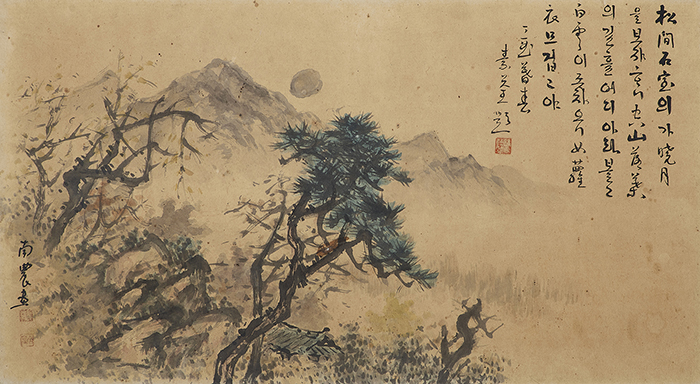 松間石室의가曉月
을보쟈ᄒᆞ니空山落葉
의길흘어디아라볼고
白雲이좃차오니女蘿
衣므겁고야
暮春
素荃題
南農畫